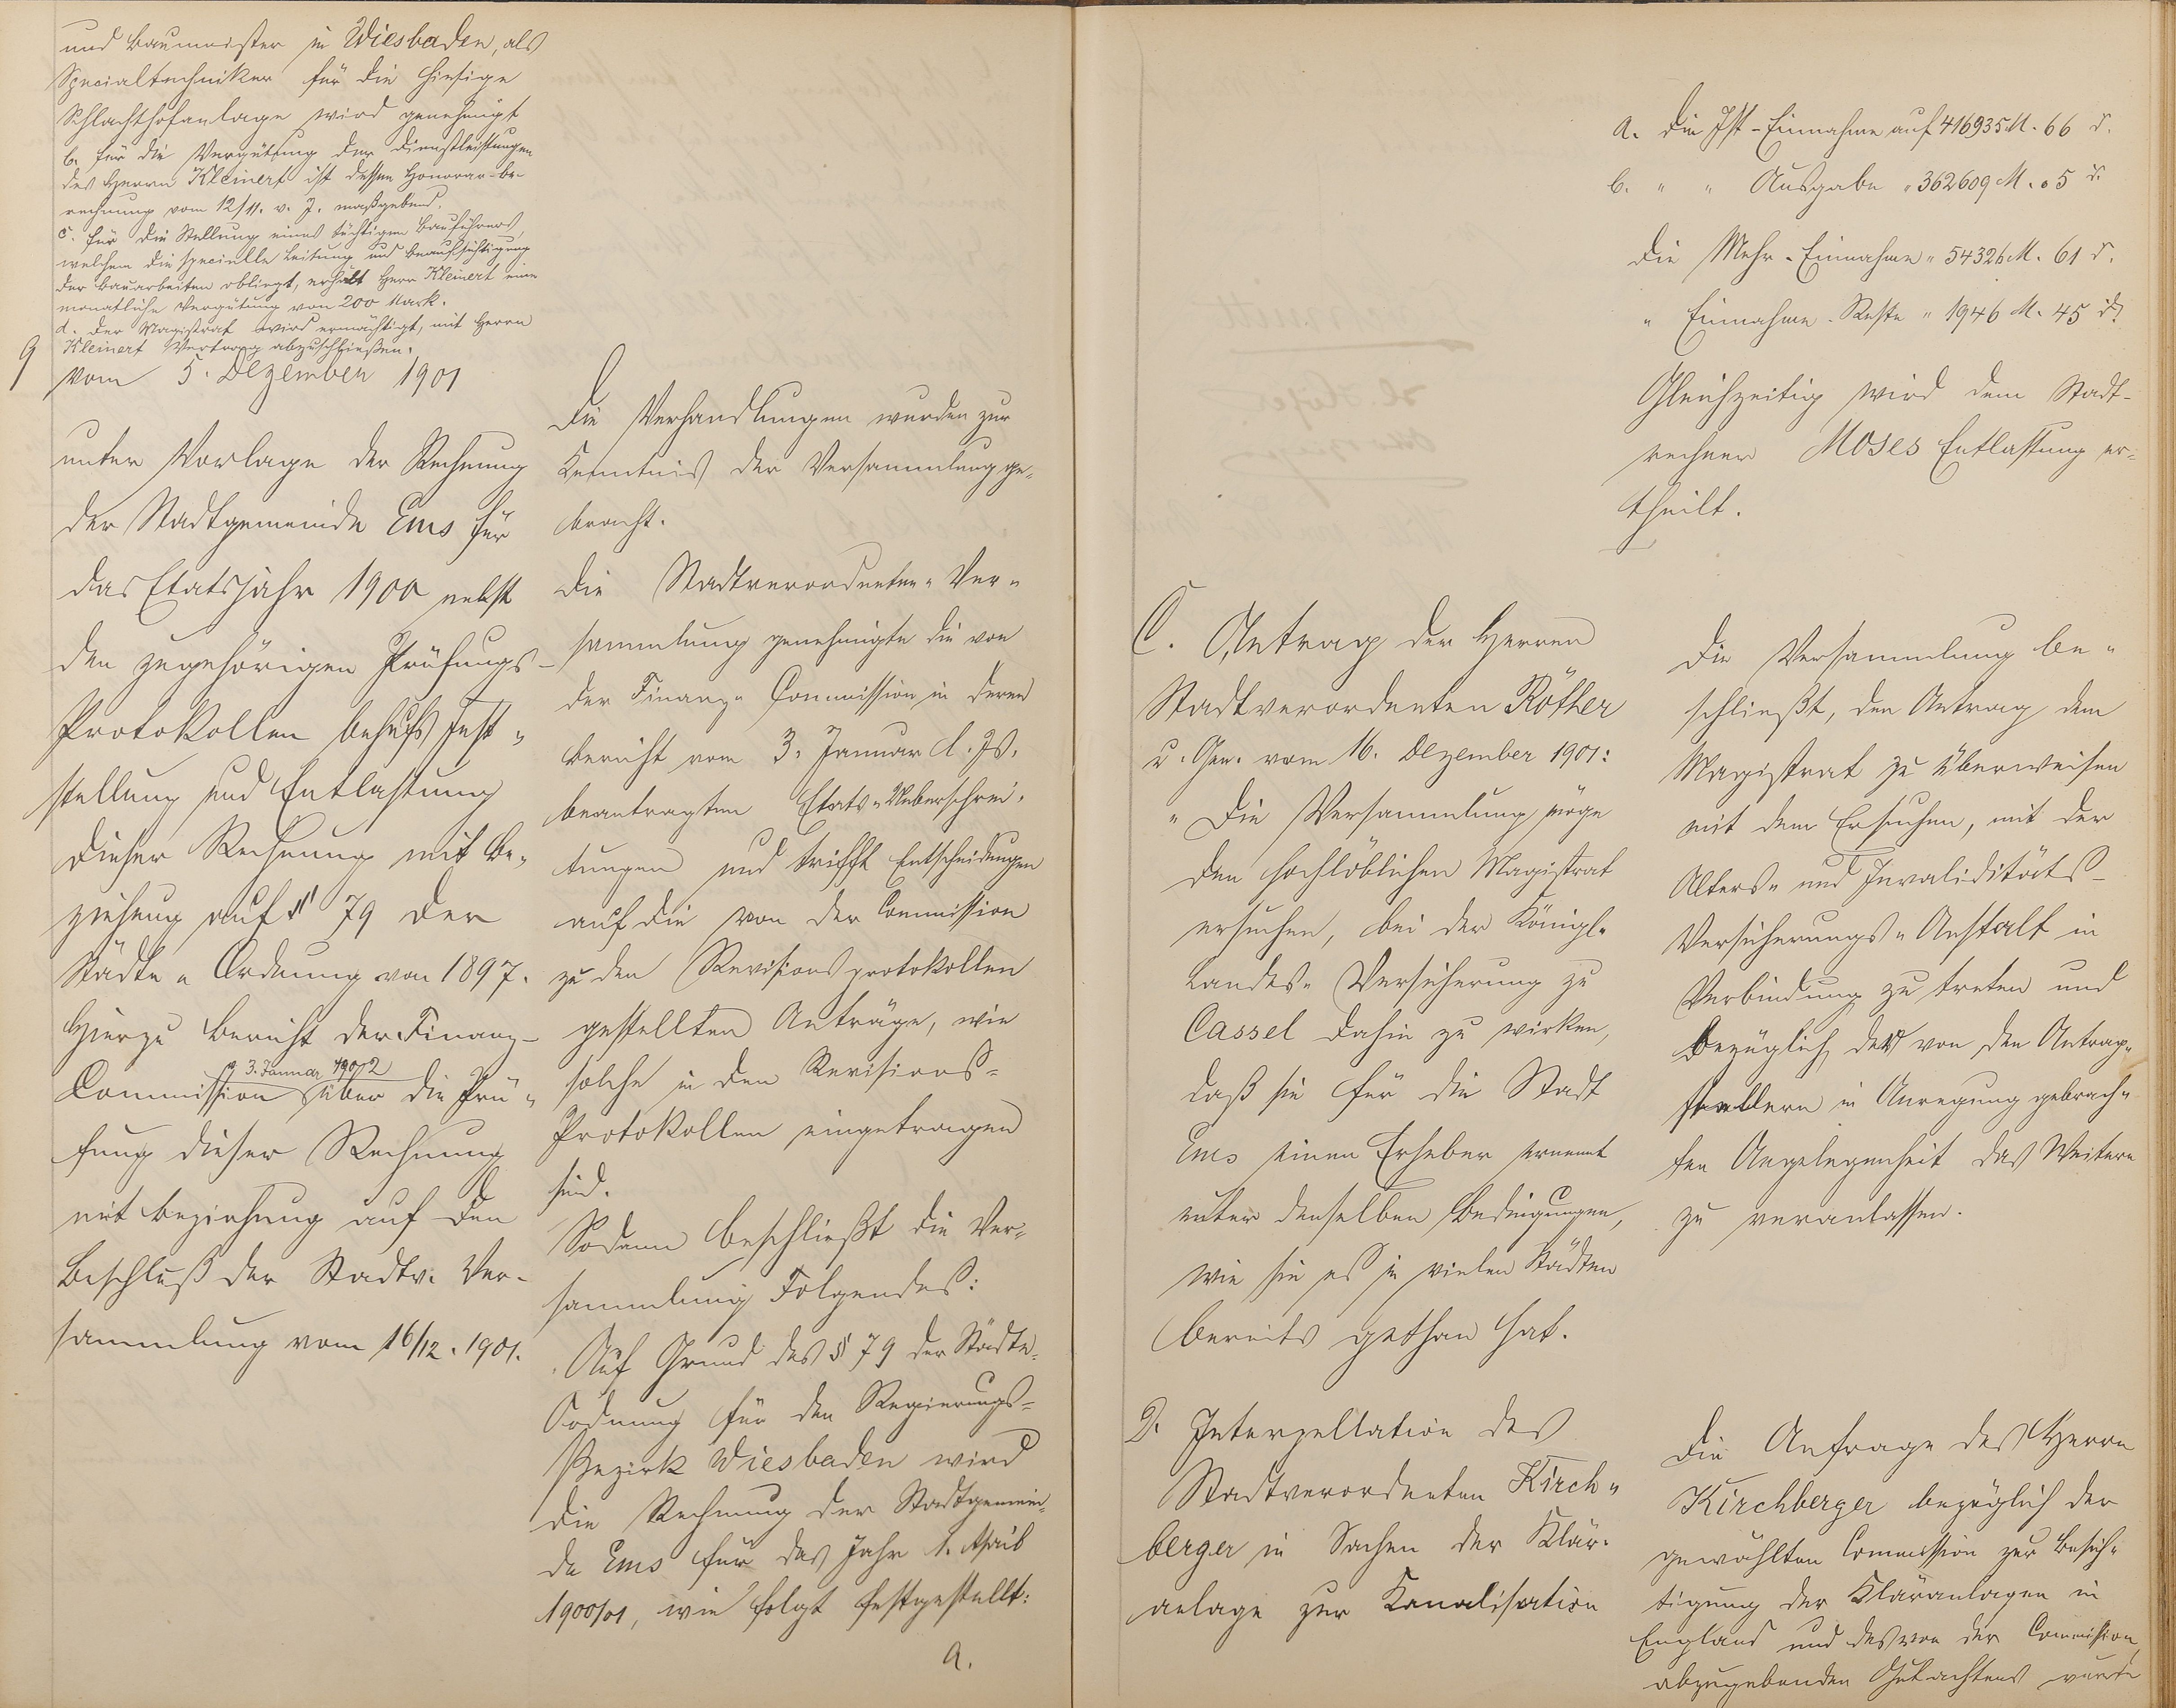 und Baumeister in Wiesbaden, als
Specialtechniker für die hiesige
Schlachthofanlage wird genehmigt
b. für die Vergütung der Dienstleistungen
des Herrn Kleinert ist dessen Honorar-Be-
rechnung vom 12/11. v. J. maßgebend.
c. für die Stellung eines tüchtigen Bauführers,
welchem die specielle Leitung und Beaufsichtigung
der Bauarbeiten obliegt, erhält Herr Kleinert eine
monatliche Vergütung von 200 Mark.
d. der Magistrat wird ermächtigt, mit Herrn
Kleinert Vertrag abzuschließen.
9
vom 5. Dezember 1901
unter Vorlage der Rechnung
der Stadtgemeinde Ems für
das Etatsjahr 1900 nebst
den zugehörigen Prüfungs-
Protokollen behufs Fest-
stellung und Entlastung
dieser Rechnung mit Be-
ziehung auf § 79 der
Städte-Ordnung von 1897.
Hierzu Bericht der Finanz-
3. Januar 1902
Commission über die Prü-
fung dieser Rechnung
mit Beziehung auf den
Beschluß der Stadtv. Ver-
sammlung vom 16/12. 1901.
Die Verhandlungen wurden zur
Kenntnis der Versammlung ge-
bracht.
Die Stadtverordneten-Ver-
sammlung genehmigte die von
der Finanz-Commission in deren
Bericht vom 3. Januar l. Js.
beantragten Etats-Ueberschrei-
tungen und trifft Entscheidungen
auf die von der Commission
zu den Revisionsprotokollen
gestellten Anträge, wie
solche in den Revisions-
Protokollen eingetragen
sind.
Sodann beschließt die Ver-
sammlung Folgendes:
Auf Grund des § 79 der Städte-
Ordnung für den Regierungs-
Bezirk Wiesbaden wird
die Rechnung der Stadtgemein-
de Ems für das Jahr 1. April
1900/01, wie folgt festgestellt:
a.
a. die Ist-Einnahme auf 416935 M. 66 d.
b. " " Ausgabe " 362609 M. 05 d.
die Mehr-Einnahme " 54326 M. 61 d.
" Einnahme-Reste " 1946 M. 45 d.
Gleichzeitig wird dem Stadt-
rechner Moses Entlastung er-
theilt.
C. Antrag der Herren
Stadtverordneten Röther
u. Gen. vom 16. Dezember 1901:
" Die Versammlung möge
den hochlöblichen Magistrat
ersuchen, bei der Königl.
Landes-Versicherung zu
Cassel dahin zu wirken,
daß sie für die Stadt
Ems einen Erheber ernennt
unter denselben Bedingungen,
wie sie es in vielen Städten
bereits gethan hat.
Die Versammlung be-
schließt, den Antrag dem
Magistrat zu überweisen
mit dem Ersuchen, mit der
Alters- und Invaliditäts-
Versicherungs-Anstalt in
Verbindung zu treten und
bezüglich der von den Antrag-
stellern in Anregung gebrach-
ten Angelegenheit das Weitere
zu veranlassen.
D. Interpellation des
Stadtverordneten Kirch-
berger in Sachen der Klär-
anlage zur Kanalisation
Die Anfrage des Herrn
Kirchberger bezüglich der
gewählten Commission zur Besich-
tigung der Kläranlagen in
England und des von der Commission
abzugebenden Gutachtens wurde